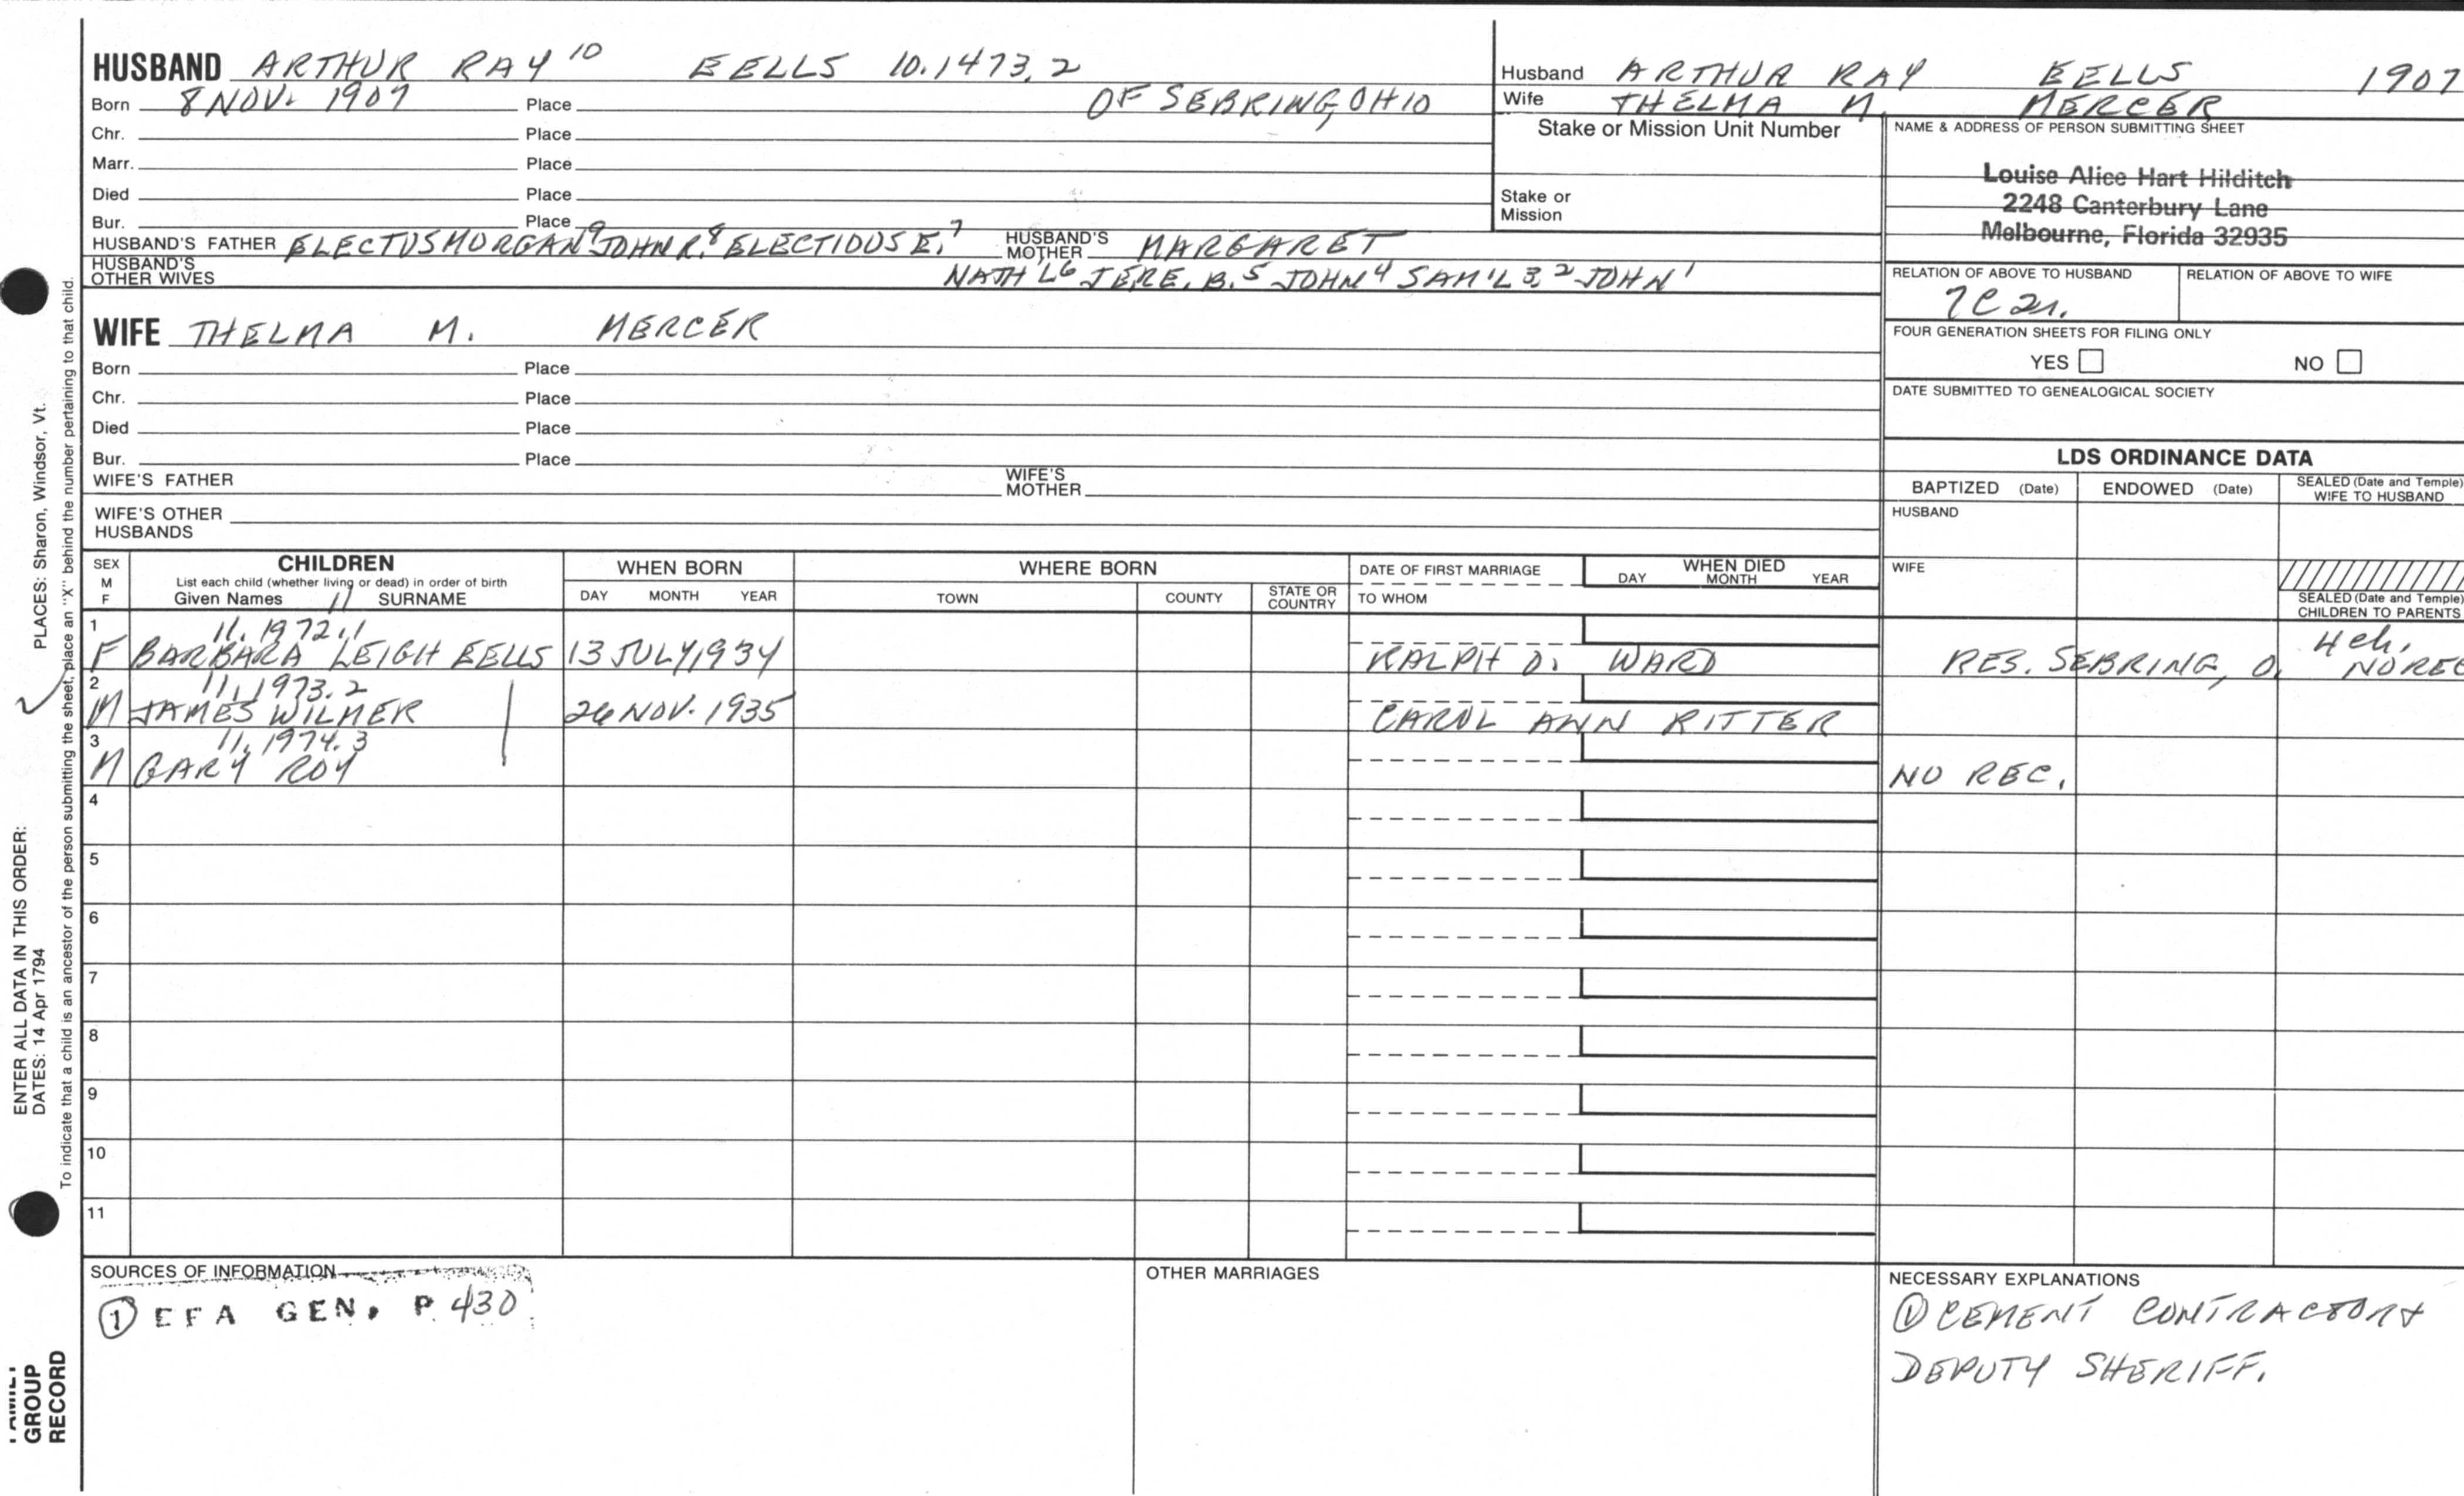 HUSBAND ARTHUR RAY 10 EELLS 10.1473.2
Born 8 NOV. 1907 Place OF SEBRING, OHIO
Chr. Place
Marr. Place
Died Place
Bur. Place
HUSBAND'S FATHER ELECTUS MORGAN 9 JOHN R. 8 ELECTIOUS E. 7 HUSBAND'S MOTHER MARGARET
HUSBAND'S OTHER WIVES NATH'L 6 JERE. B. 5 JOHN 4 SAM'L 3, 2 JOHN 1
WIFE THELMA M. MERCER
Born Place
Chr. Place
Died Place
Bur. Place
WIFE'S FATHER WIFE'S MOTHER
WIFE'S OTHER HUSBANDS
Husband ARTHUR RAY EELLS 1907
Wife THELMA M. MERCER
Stake or Mission Unit Number
Stake or
Mission
NAME & ADDRESS OF PERSON SUBMITTING SHEET
Louise Alice Hart Hilditch
2248 Canterbury Lane
Melbourne, Florida 32935
RELATION OF ABOVE TO HUSBAND RELATION OF ABOVE TO WIFE
7C 2r.
FOUR GENERATION SHEETS FOR FILING ONLY
YES NO
DATE SUBMITTED TO GENEALOGICAL SOCIETY
LDS ORDINANCE DATA
BAPTIZED (Date) ENDOWED (Date) SEALED (Date and Temple) WIFE TO HUSBAND
HUSBAND
WIFE
SEALED (Date and Temple)
CHILDREN TO PARENTS
SEX M F CHILDREN WHEN BORN WHERE BORN DATE OF FIRST MARRIAGE WHEN DIED
List each child (whether living or dead) in order of birth
Given Names 11 SURNAME DAY MONTH YEAR TOWN COUNTY STATE OR COUNTRY TO WHOM DAY MONTH YEAR
1 11.1972.1
F BARBARA LEIGH EELLS 13 JULY 1934 RALPH D. WARD RES. SEBRING, O. 4 ch. NO REC
2 11.1973.2
M JAMES WILMER 26 NOV. 1935 CAROL ANN RITTER
3 11.1974.3
M GARY ROY NO REC.
4
5
6
7
8
9
10
11
SOURCES OF INFORMATION
1 EFA GEN. P 430
OTHER MARRIAGES
NECESSARY EXPLANATIONS
1 CEMENT CONTRACTOR &
DEPUTY SHERIFF.
PLACES: Sharon, Windsor, Vt.
ENTER ALL DATA IN THIS ORDER:
DATES: 14 Apr 1794
To indicate that a child is an ancestor of the person submitting the sheet, place an "X" behind the number pertaining to that child.
FAMILY
GROUP
RECORD